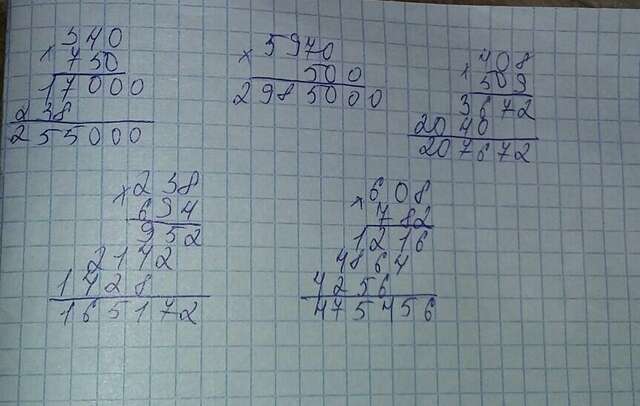 340
× 750
17000
238
255000
5970
× 500
2985000
408
× 509
3672
2040
207672
× 238
694
952
2142
1428
165172
× 608
782
1216
4864
4256
475456